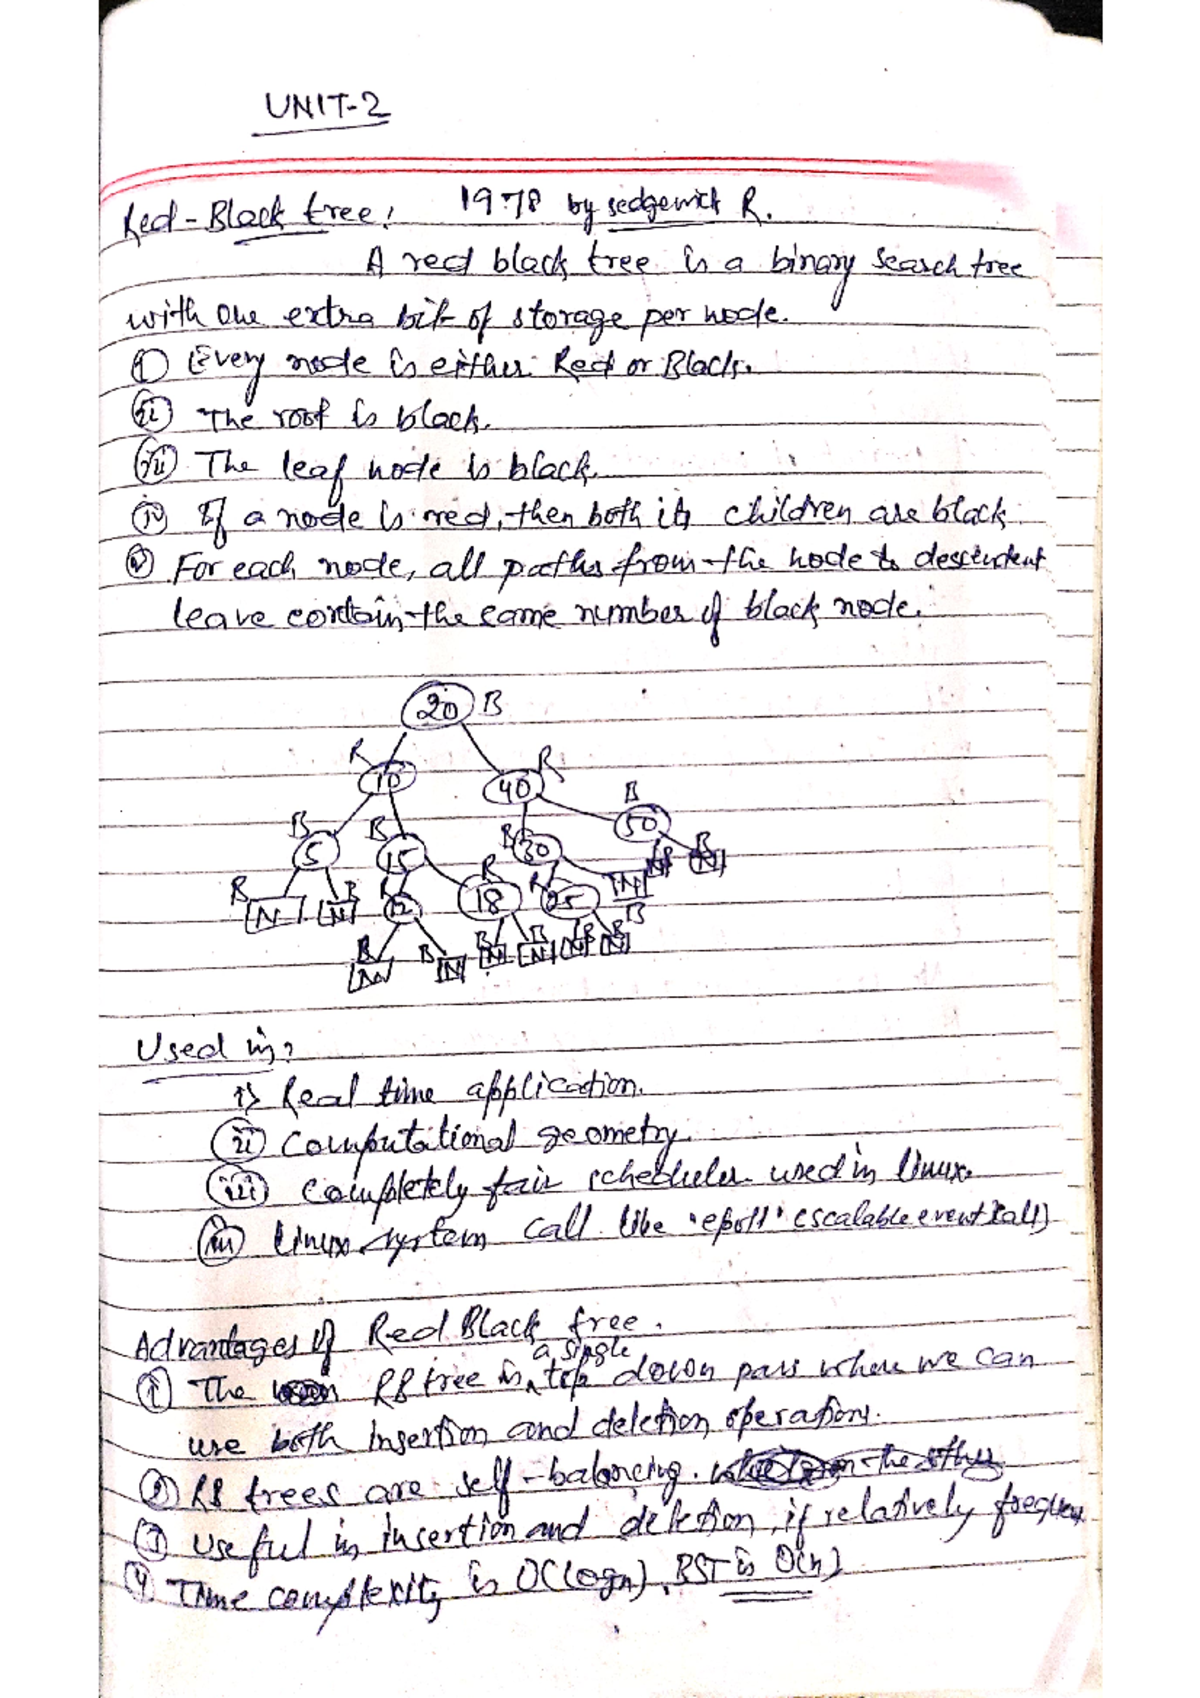 UNIT-2
Red-Black tree! 1978 by sedgewick R.
A red black tree is a binary search tree
with one extra bit of storage per node.
① Every node is either Red or Black.
ⅱ The root is black.
ⅲ The leaf node is black.
ⅳ If a node is red, then both its children are black
ⅴ For each node, all paths from the node to descendent
leave contain the same number of black node.
20 B
R 10 40 R B
B 5 B 15 B 30 50
R N B N R 12 R 18 R 25 N B N B N
B N B N B N B N B N B N B
Used in?
i> Real time application.
ⅱ Computational geometry
ⅲ Completely fair scheduler used in linux.
linux system call like 'epoll' (scalable event call)
Advantages of Red Black tree.
a single
① The RB tree is top down pass where we can
use both insertion and deletion operations.
② RB trees are self-balancing.
③ Useful in insertion and deletion, if relatively frequent
④ Time complexity is O(logn), BST is O(n)